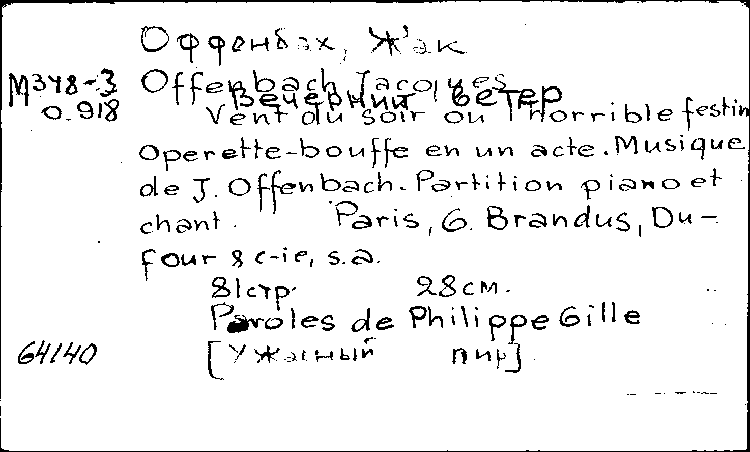 Оффенбах, Жак
М378-3 Offenbach Jacques
Вечерний ветер
0.918 Vent du soir ou l'horrible festin
Operette-bouffe en un acte. Musique
de J. Offenbach. Partition piano et
chant. Paris, G. Brandus, Du-
four & c-ie, s.a.
81стр. 28см.
Paroles de Philippe Gille
64140 [Ужасный пир]